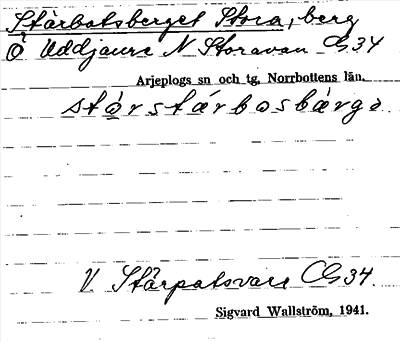 Stärbatsberget Stora, berg
Ö Uddjaure N Storavan CG 34
Arjeplogs sn och tg, Norrbottens län.
stórstárbosbárgə
V. Stärpatsvare CG 34.
Sigvard Wallström, 1941.